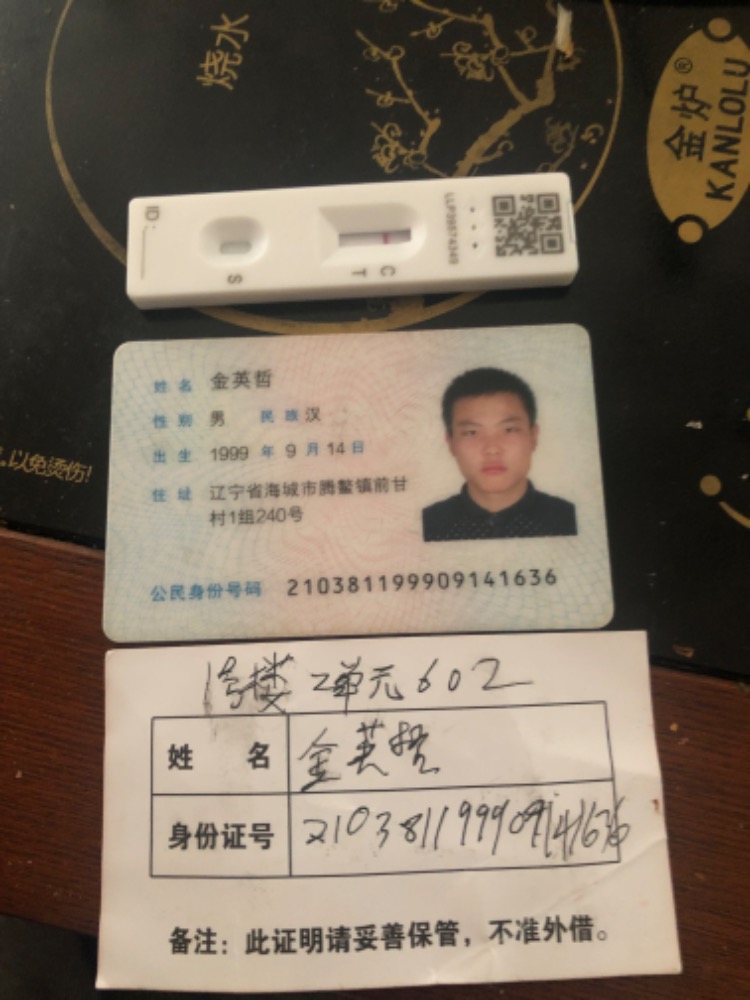 烧水
金炉®
KANLOLU
ID:
S
C
T
以免烫伤!
姓名 金英哲
性别 男 民族 汉
出生 1999 年 9 月 14 日
住址 辽宁省海城市腾鳌镇前甘
村1组240号
公民身份号码 210381199909141636
1号楼 2单元 602
姓 名 金英哲
身份证号 210381199909141636
备注：此证明请妥善保管，不准外借。